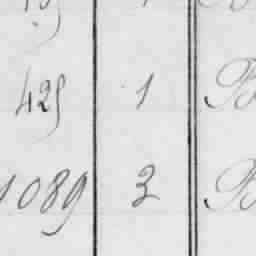 425 1 B
1089 3 B